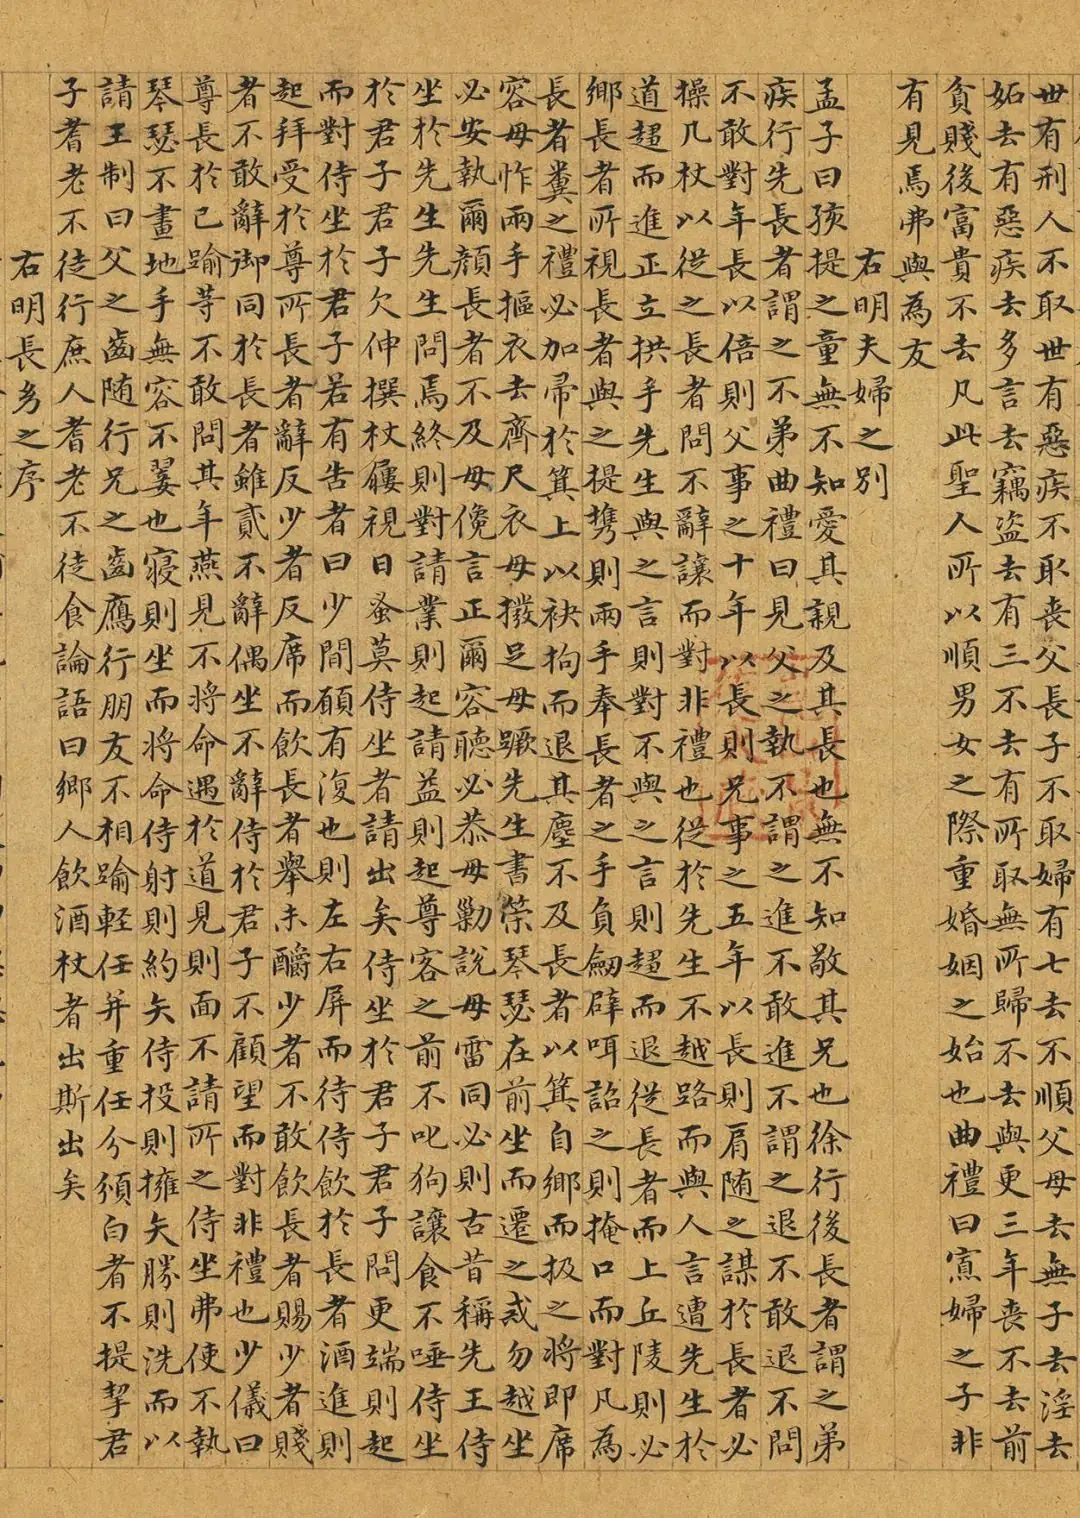 世有刑人不取世有惡疾不取喪父長子不取婦有七去不順父母去無子去淫去
妬去有惡疾去多言去竊盜去有三不去有所取無所歸不去與更三年喪不去前
貧賤後富貴不去凡此聖人所以順男女之際重婚姻之始也曲禮曰寡婦之子非
有見焉弗與為友
右明夫婦之別
孟子曰孩提之童無不知愛其親及其長也無不知敬其兄也徐行後長者謂之弟
疾行先長者謂之不弟曲禮曰見父之執不謂之進不敢進不謂之退不敢退不問
不敢對年長以倍則父事之十年以長則兄事之五年以長則肩随之謀於長者必
操几杖以從之長者問不辭讓而對非禮也從於先生不越路而與人言遭先生於
道趨而進正立拱手先生與之言則對不與之言則趨而退從長者而上丘陵則必
鄉長者所視長者與之提携則兩手奉長者之手負劒辟咡詔之則掩口而對凡為
長者糞之禮必加帚於箕上以袂拘而退其塵不及長者以箕自鄉而扱之將即席
容毋怍兩手摳衣去齊尺衣毋撥足毋蹶先生書策琴瑟在前坐而遷之戒勿越坐
必安執爾顏長者不及毋儳言正爾容聽必恭毋勦說毋雷同必則古昔稱先王侍
坐於先生先生問焉終則對請業則起請益則起尊客之前不叱狗讓食不唾侍坐
於君子君子欠伸撰杖屨視日蚤莫侍坐者請出矣侍坐於君子君子問更端則起
而對侍坐於君子若有告者曰少間願有復也則左右屏而待侍飲於長者酒進則
起拜受於尊所長者辭少者反席而飲長者舉未釂少者不敢飲長者賜少者賤
者不敢辭御同於長者雖貳不辭偶坐不辭侍於君子不顧望而對非禮也少儀曰
尊長於已踰等不敢問其年燕見不將命遇於道見則面不請所之侍坐弗使不執
琴瑟不畫地手無容不翣也寢則坐而將命侍射則約矢侍投則擁矢勝則洗而以
請王制曰父之齒随行兄之齒鴈行朋友不相踰輕任并重任分頒白者不提挈君
子耆老不徒行庶人耆老不徒食論語曰鄉人飲酒杖者出斯出矣
右明長㓜之序